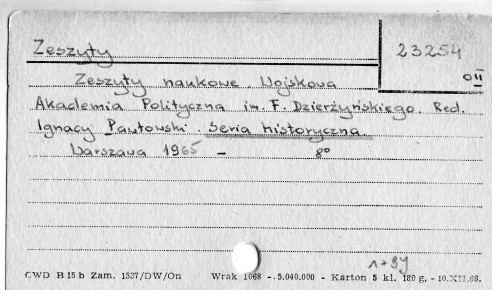 Zeszyty
23254
OII
Zeszyty naukowe. Wojskowa
Akademia Polityczna im. F. Dzierżyńskiego. Red.
Ignacy Pawłowski. Seria historyczna.
Warszawa 1965 - 8°
CWD B 15 b Zam. 1537/DW/On Wrak 1068 -. 5.040.000 - Karton 5 kl. 180 g, - 10.XII.68.